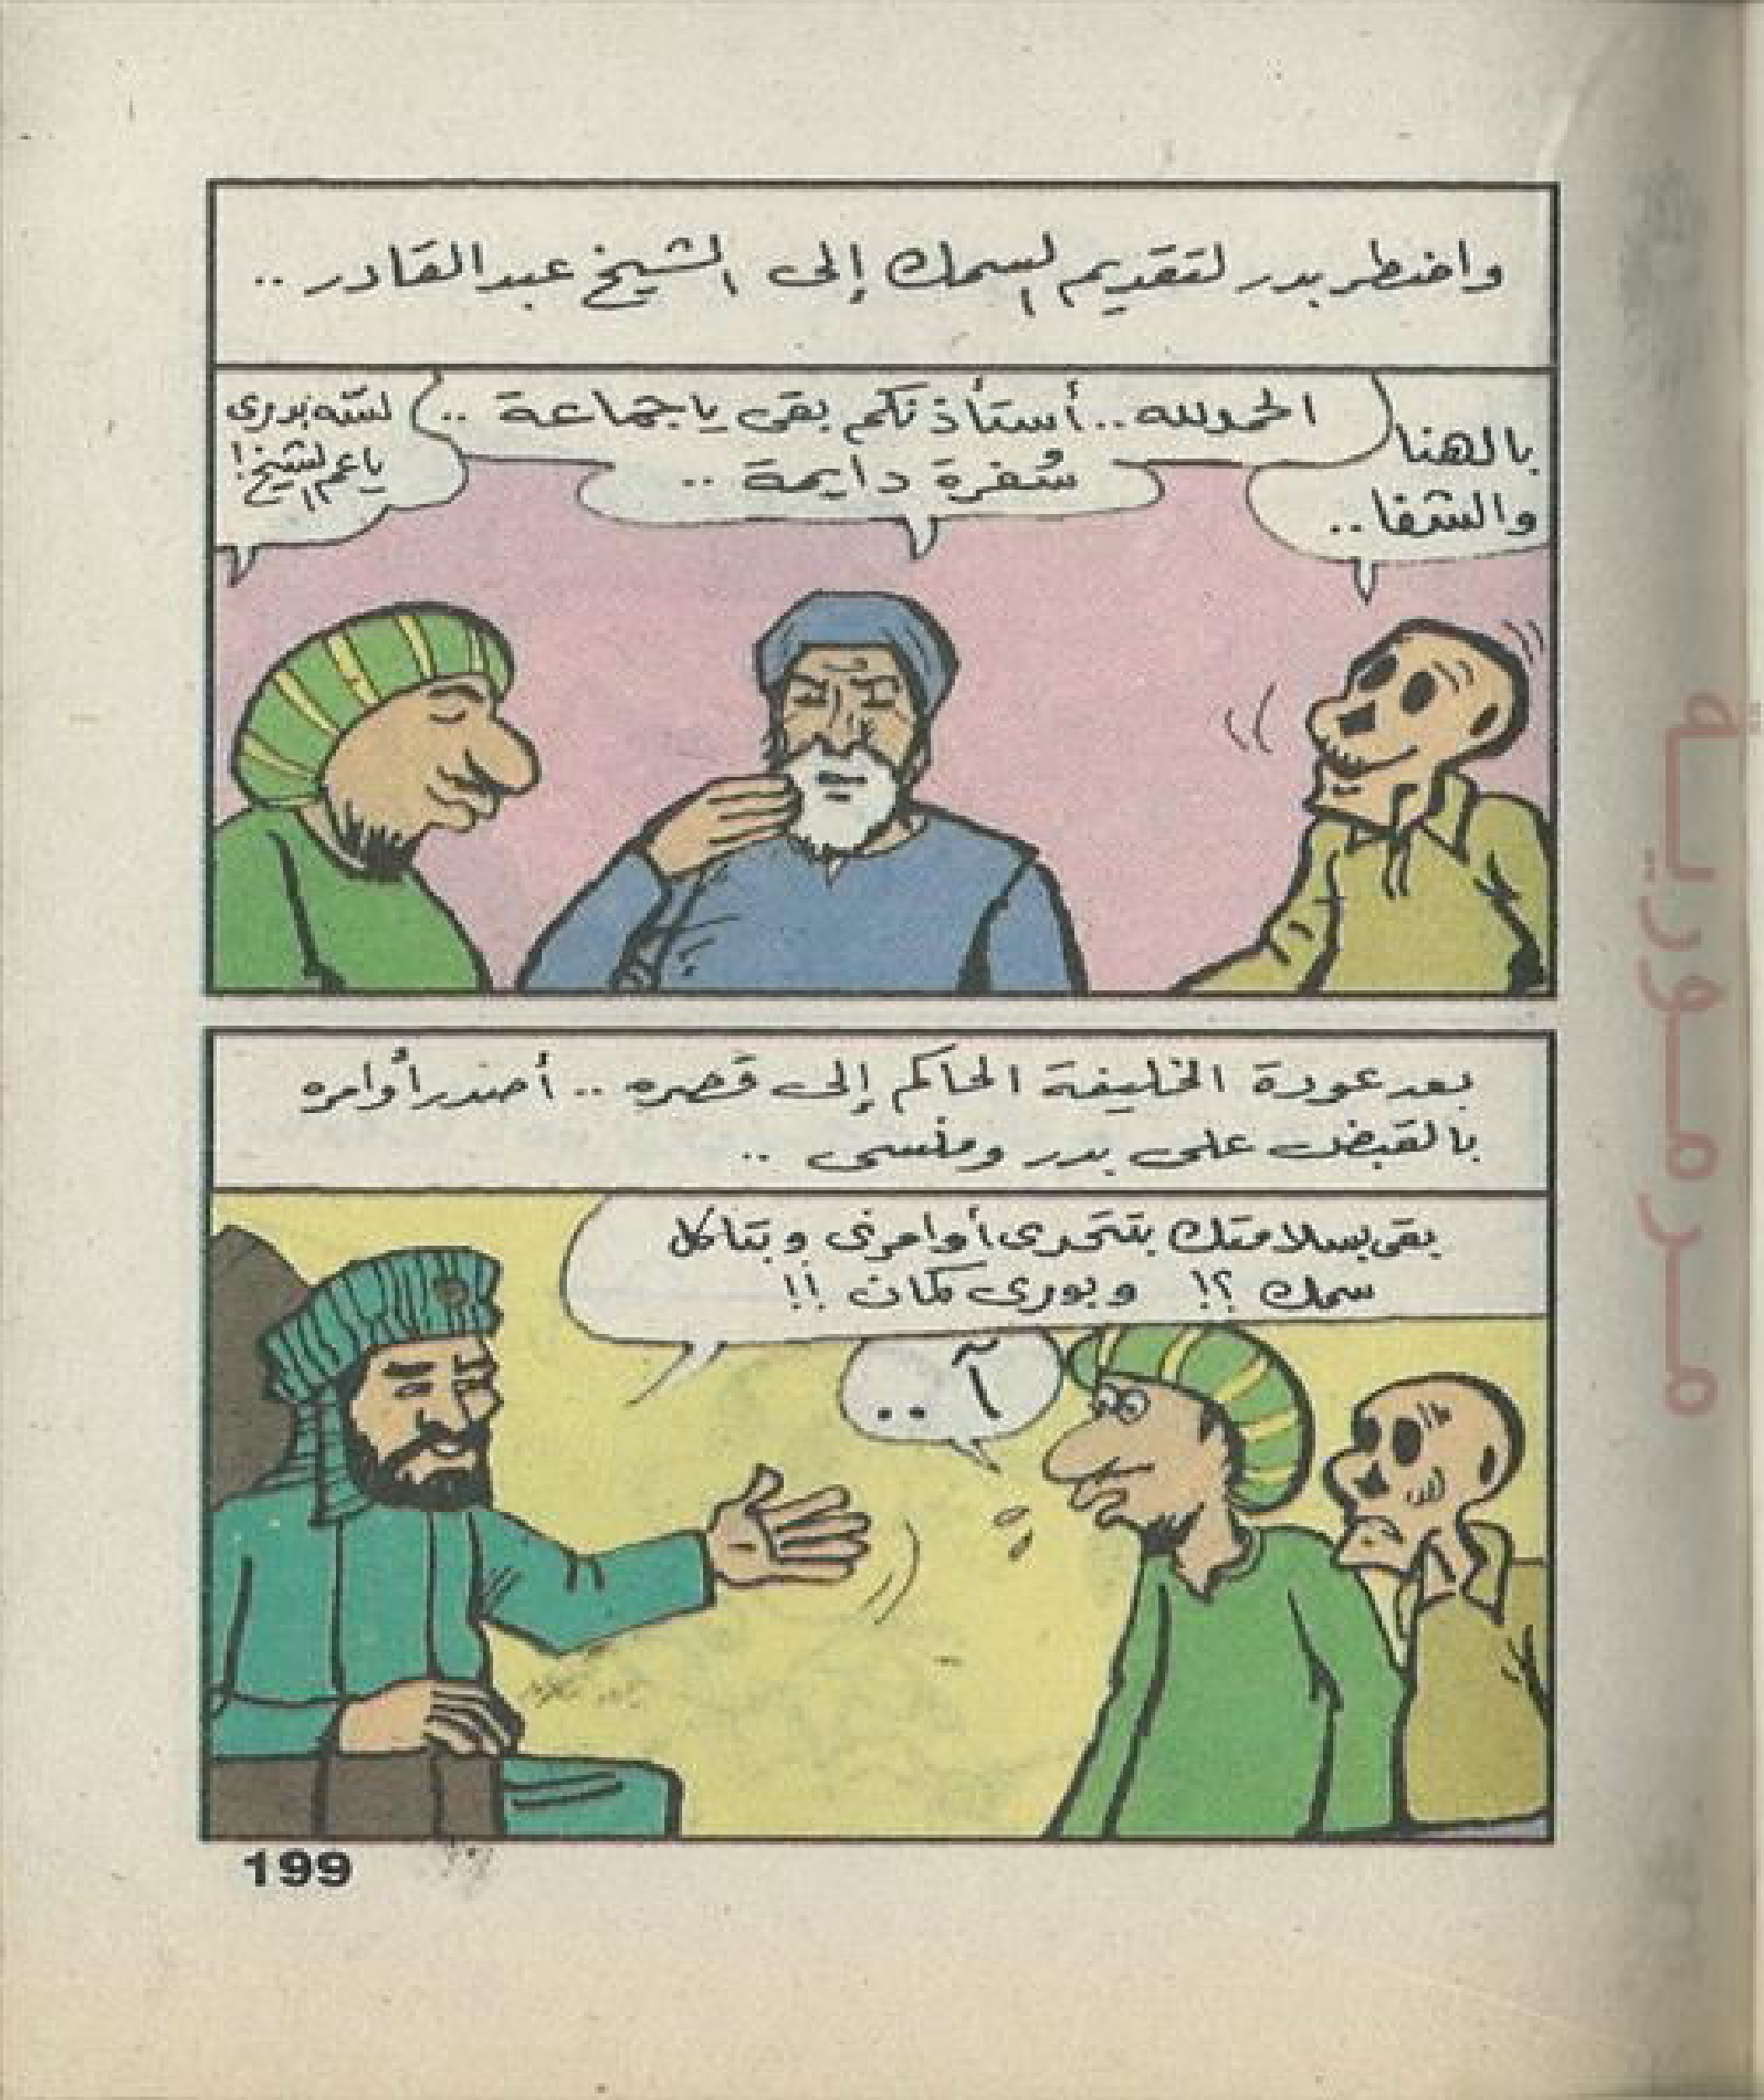 واضطر بدر لتقديم السمك إلى الشيخ عبد القادر ..
بالهنا
والشفا ..
الحمدلله .. أستأذنكم بقى يا جماعة ..
سُفرة دايمة ..
لسّه بدرى
ياعم الشيخ !
بعد عودة الخليفة الحاكم إلى قصره .. أصدر أوامره
بالقبض على بدر ومنسى ..
بقى بسلامتك بتتحدى أوامرى وبتاكل
سمك ؟! وبورى كمان !!
آ ..
199
مرمورية